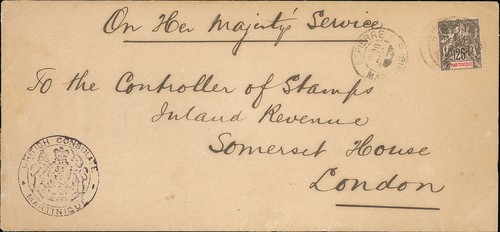 On Her Majesty's Service
ST PIERRE
MARTINIQUE
25
MARTINIQUE
To the Controller of Stamps
Inland Revenue
Somerset House
London
BRITISH CONSULATE
MARTINIQUE